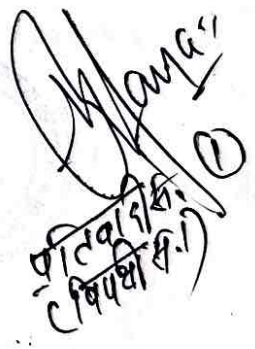 ①
प्रतिवादी सं.
(विपक्षी सं.)